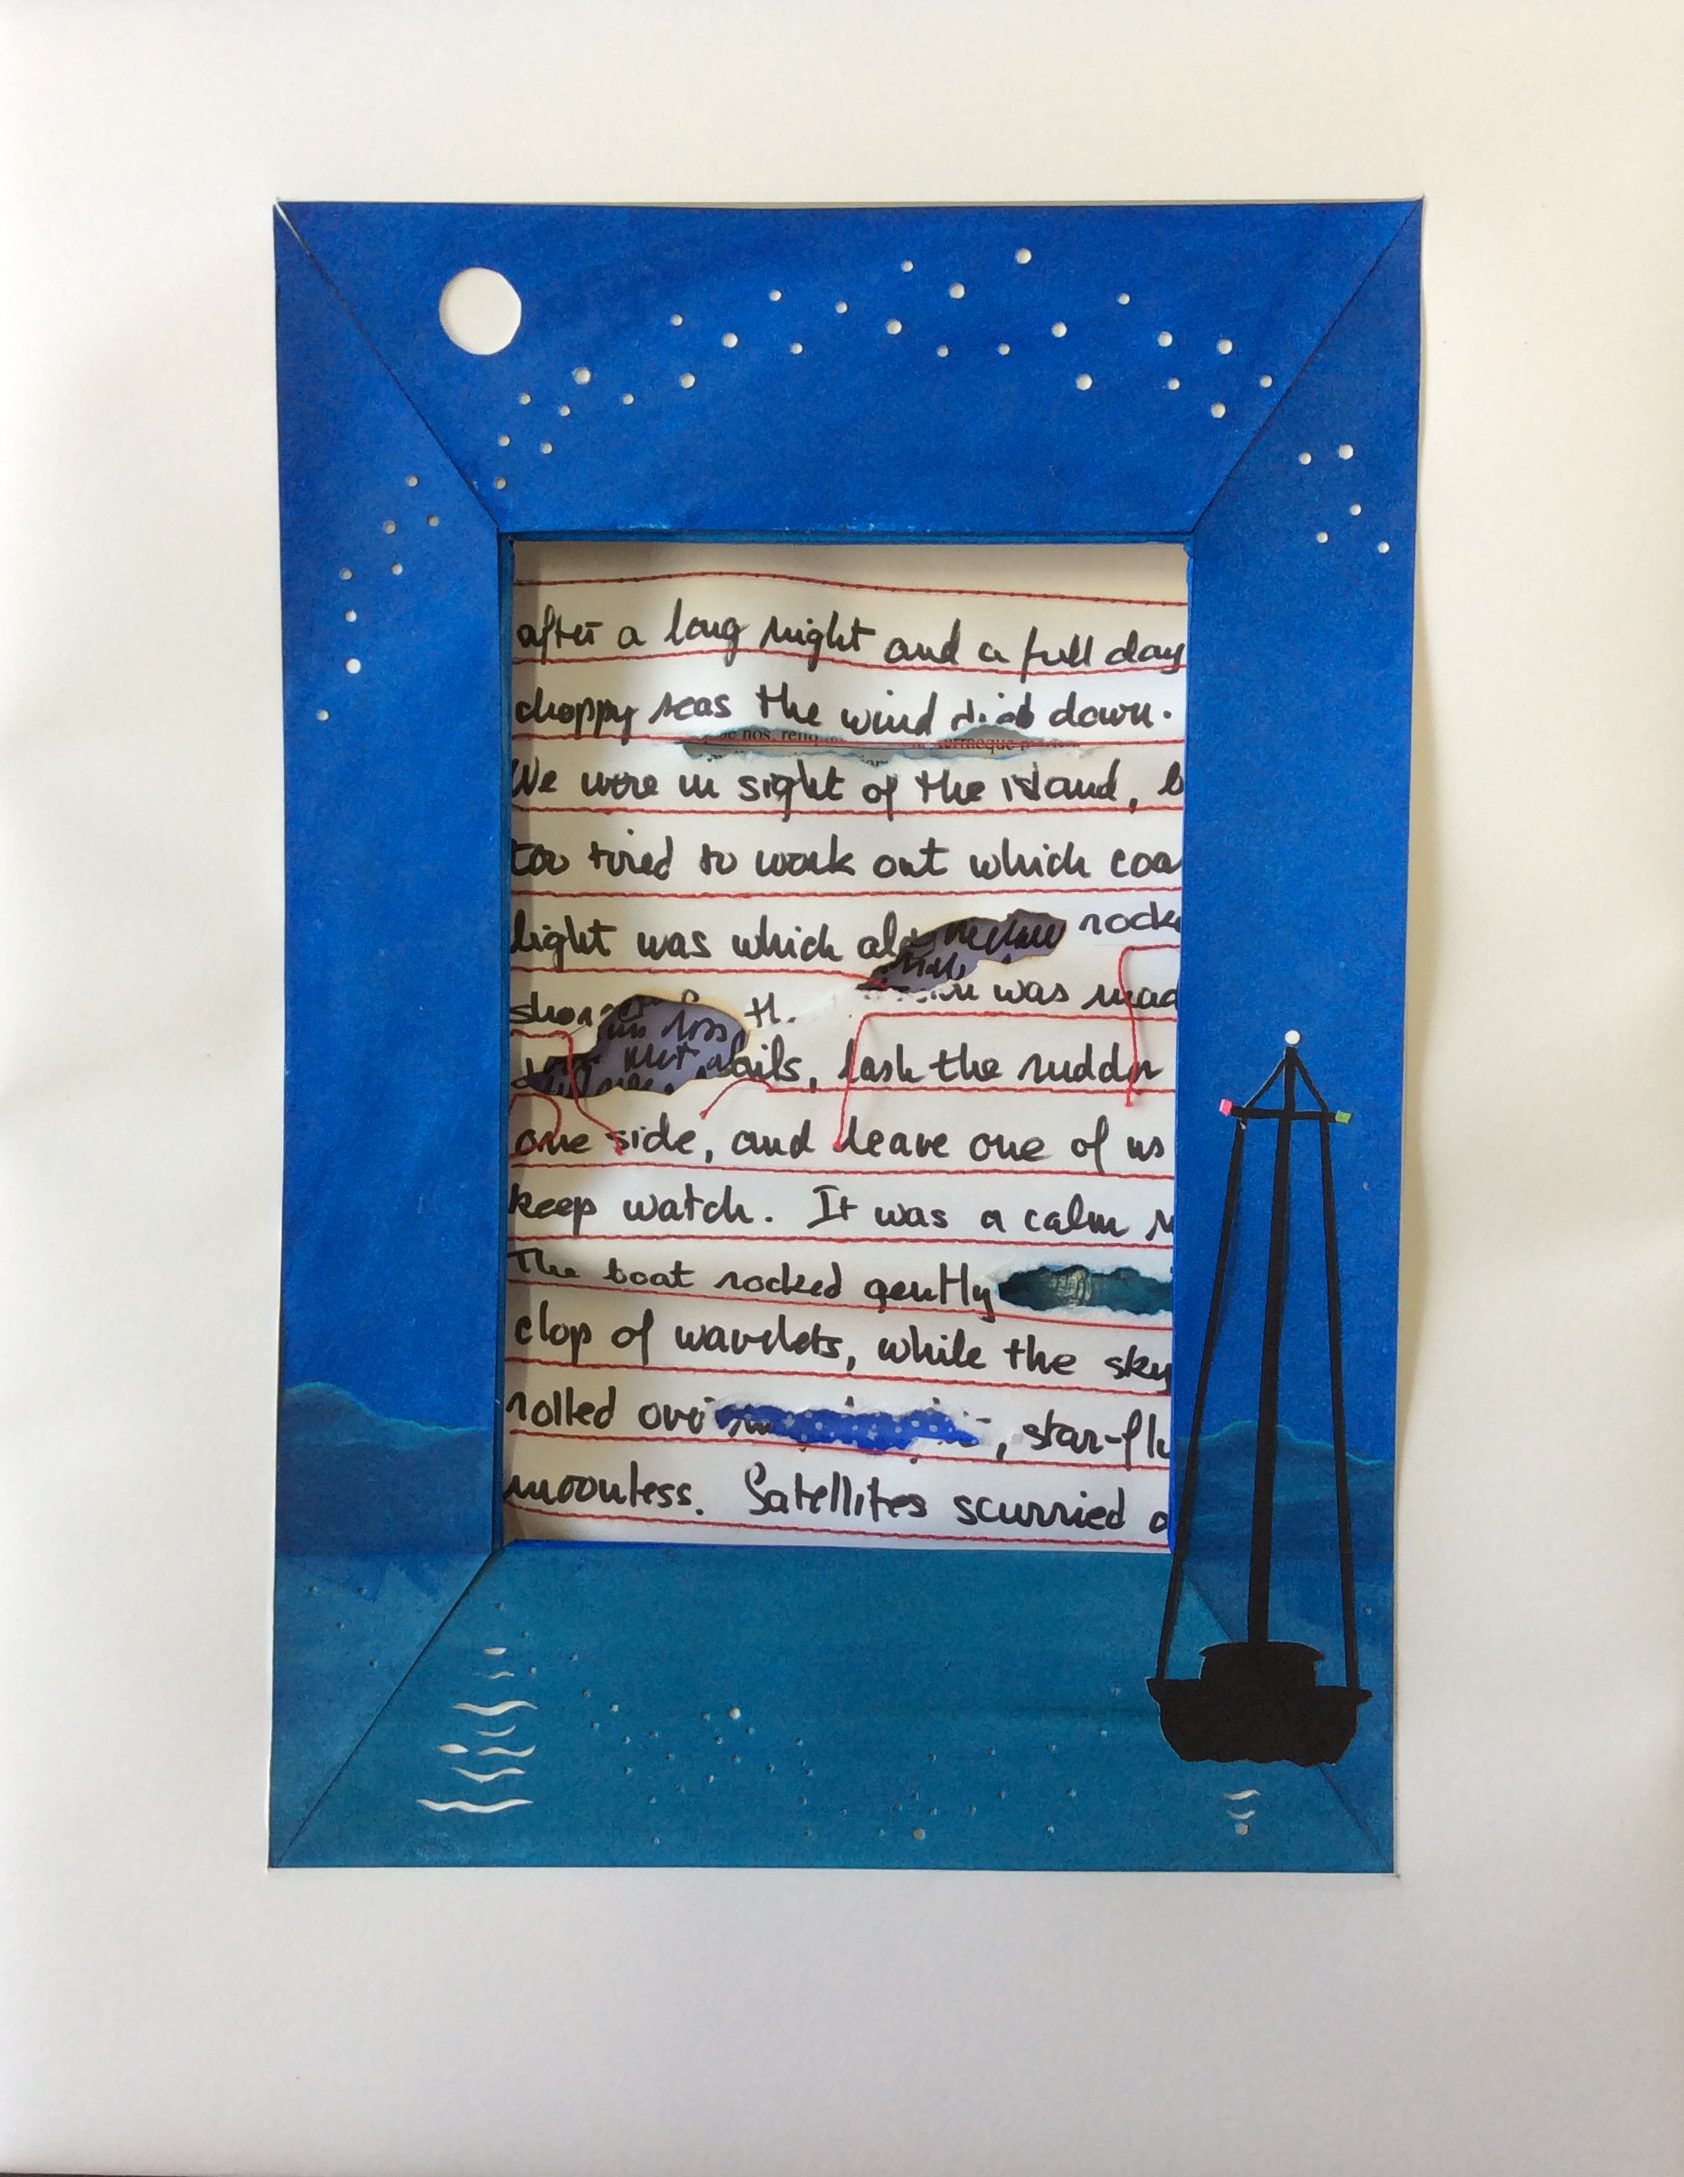 after a long night and a full day
choppy seas the wind died down.
nos,
We were in sight of the island, b
too tired to work out which coa
light was which al rock
was mad
ails, lash the rudder
one side, and leave one of us
keep watch. It was a calm n
The boat rocked gently
clop of wavelets, while the sky
rolled over , star-fl
moonless. Satellites scurried a